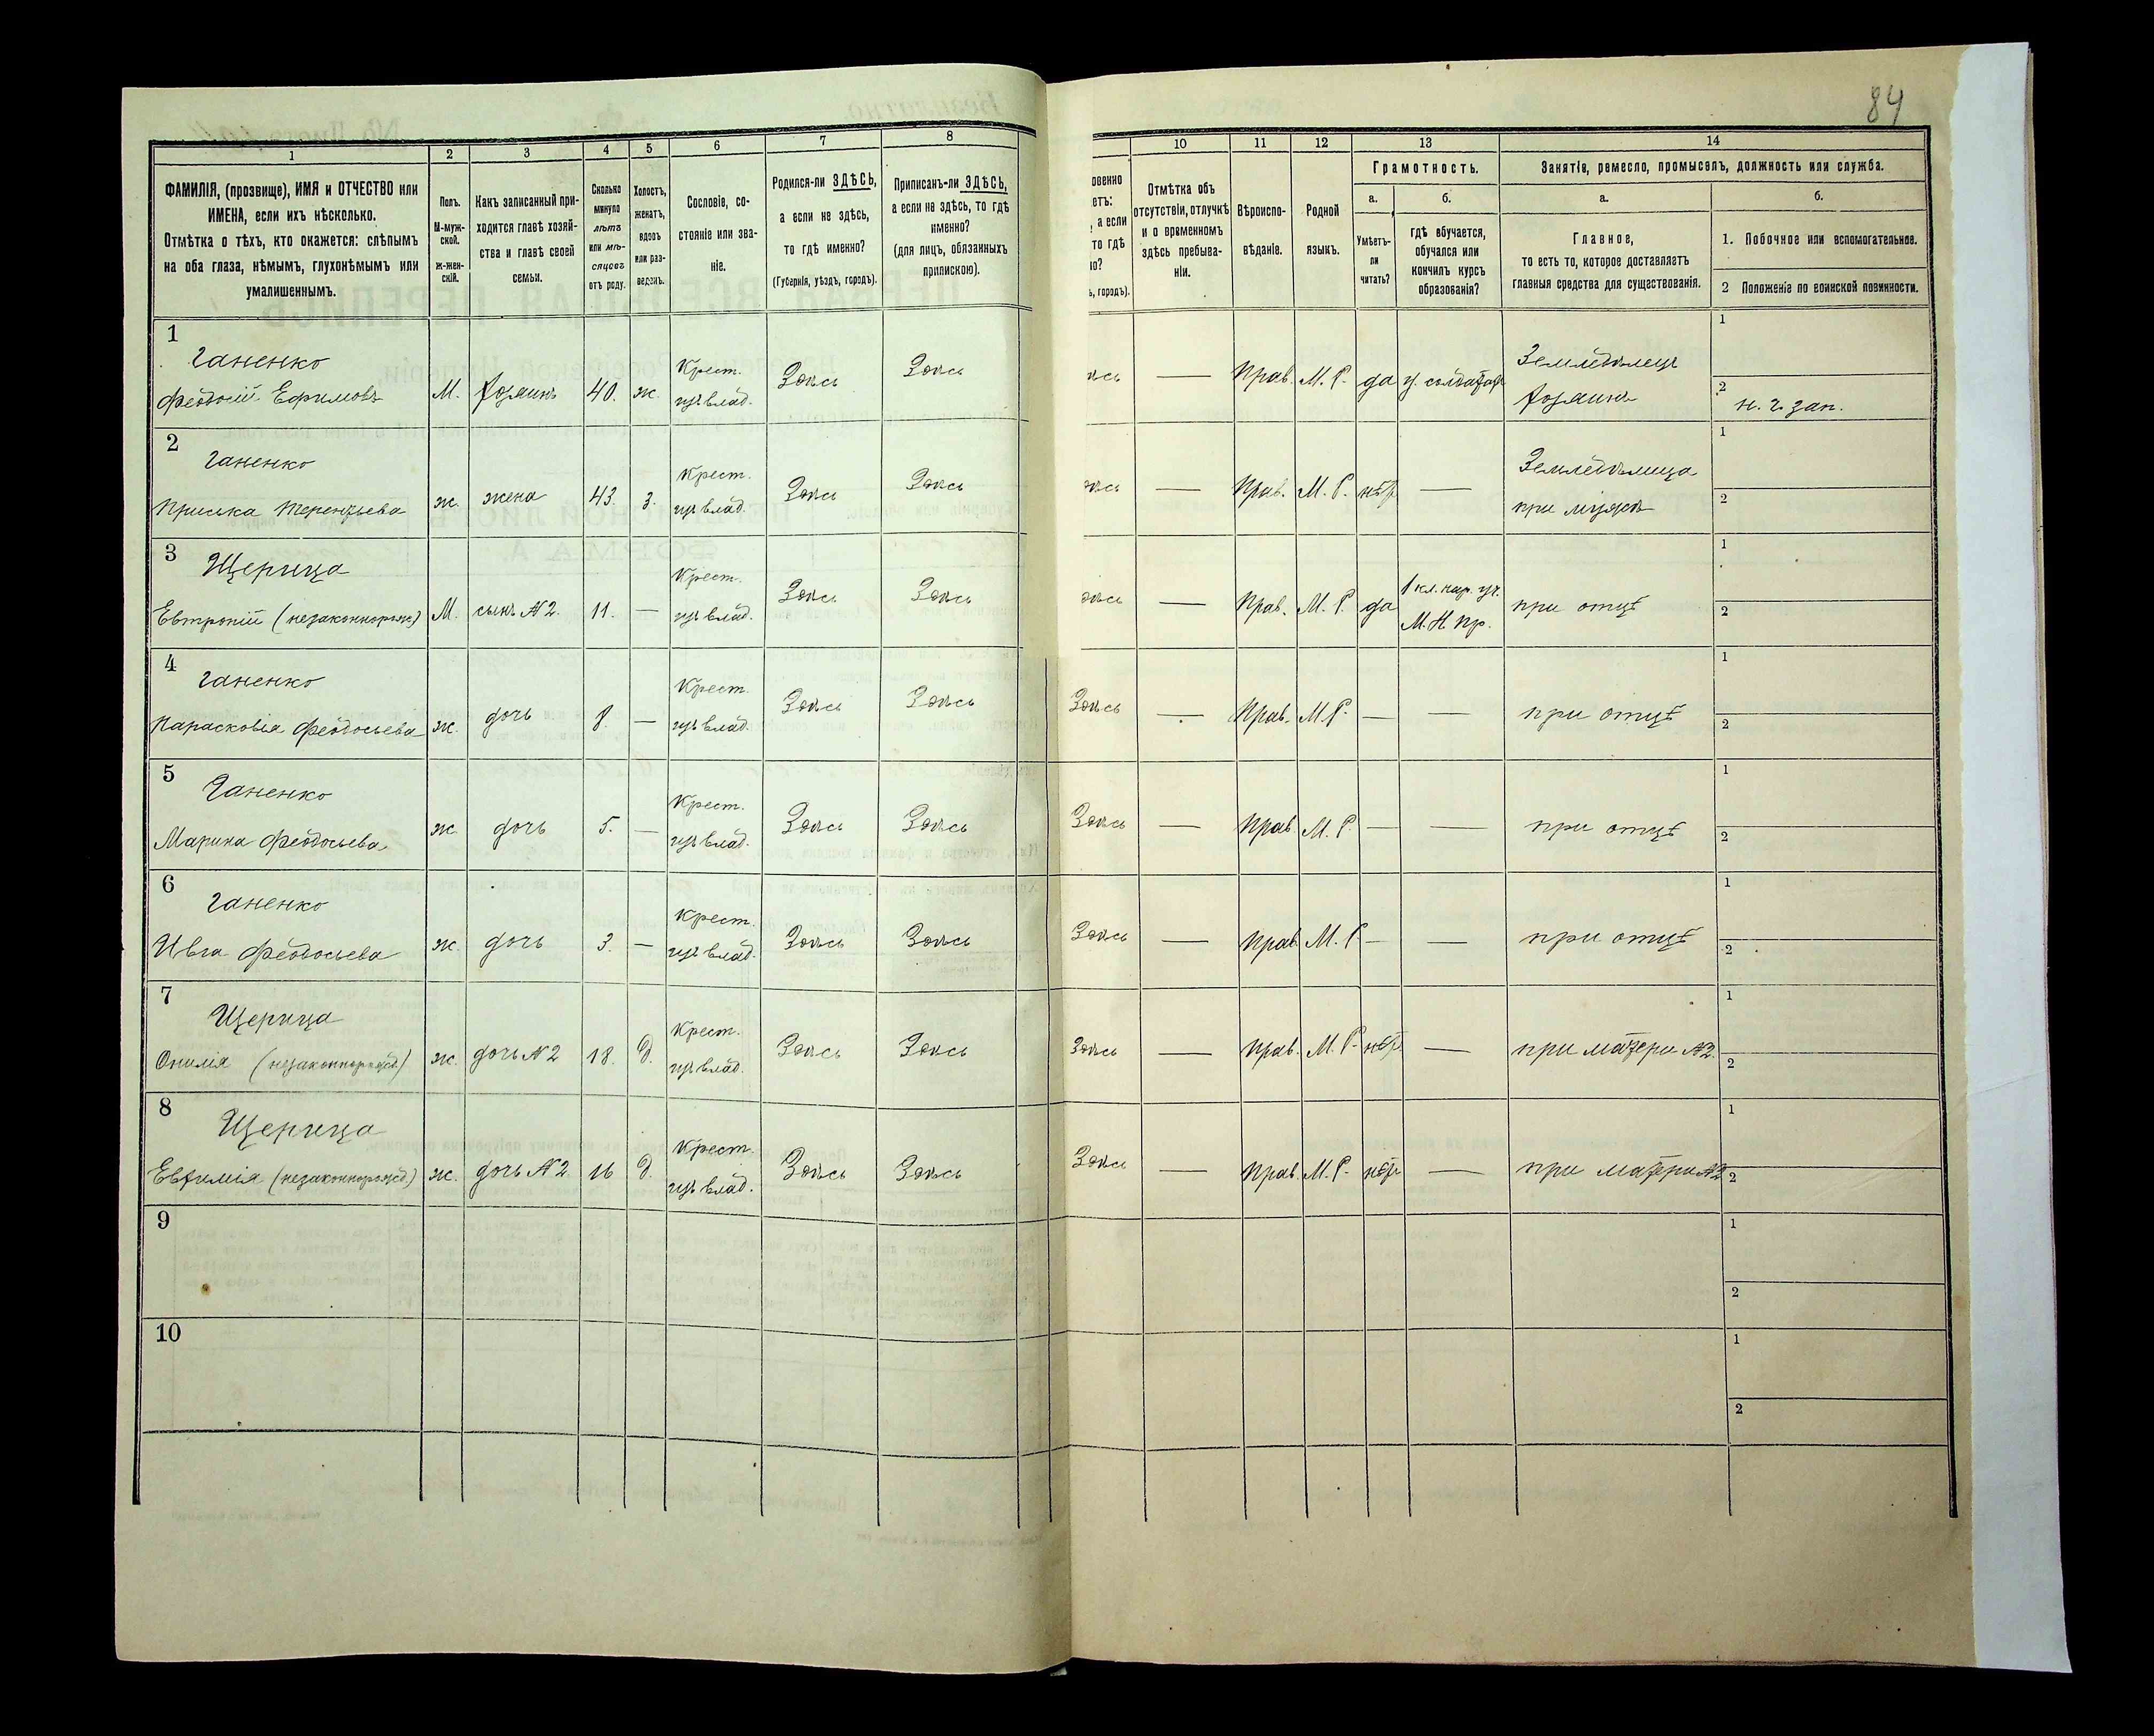 84
1
2
3
4
5
6
7
8
10
11
12
13
14
ФАМИЛІЯ, (прозвище), ИМЯ и ОТЧЕСТВО или
ИМЕНА, если ихъ нѣсколько.
Отмѣтка о тѣхъ, кто окажется: слѣпымъ
на оба глаза, нѣмымъ, глухонѣмымъ или
умалишеннымъ.
Полъ.
М-муж-
ской.
ж-жен-
скій.
Какъ записанный при-
ходится главѣ хозяй-
ства и главѣ своей
семьи.
Сколько
минуло
лѣтъ
или мѣ-
сяцевъ
отъ роду.
Холостъ,
женатъ,
вдовъ
или раз-
веденъ.
Сословіе, со-
стояніе или зва-
ніе.
Родился-ли ЗДѢСЬ,
а если не здѣсь,
то гдѣ именно?
(Губернія, уѣздъ, городъ).
Приписанъ-ли ЗДѢСЬ,
а если не здѣсь, то гдѣ
именно?
(для лицъ, обязанныхъ
припискою).
овенно
етъ:
, а если
то гдѣ
но?
ь, городъ).
Отмѣтка объ
отсутствіи, отлучкѣ
и о временномъ
здѣсь пребыва-
ніи.
Вѣроиспо-
вѣданіе.
Родной
языкъ.
Грамотность.
а.
Умѣетъ-
ли
читать?
б.
гдѣ обучается,
обучался или
кончилъ курсъ
образованія?
Занятіе, ремесло, промыселъ, должность или служба.
а.
Главное,
то есть то, которое доставляетъ
главныя средства для существованія.
б.
1. Побочное или вспомогательное.
2 Положеніе по воинской повинности.
1
Ганенко
Феодосій Ефимовъ М. хозяинъ 40. ж. Крест. изъ влад. Здѣсь Здѣсь ѣсь — Прав. М. Р. да Земледѣлецъ хозяинъ
1
2 н. ч. зап.
2
Ганенко
Приська Терентьева ж. жена 43. з. Крест. изъ влад. Здѣсь Здѣсь ѣсь — Прав. М. Р. нѣтъ — Земледѣлица при мужѣ
1
2
3
Щерица
Евтропій (незаконнорож) М. сынъ №2. 11. — Крест. изъ влад. Здѣсь Здѣсь ѣсь — Прав. М. Р. да 1 кл. нар. уч. М. Н. Пр. при отцѣ
1
2
4
Ганенко
Парасковія Феодосьева ж. дочь 8. — Крест. изъ влад. Здѣсь Здѣсь Здѣсь — Прав. М. Р. — — при отцѣ
1
2
5
Ганенко
Марина Феодосьева ж. дочь 5. — Крест. изъ влад. Здѣсь Здѣсь Здѣсь — Прав. М. Р. — — при отцѣ
1
2
6
Ганенко
Ивга Феодосьева ж. дочь 3. — Крест. изъ влад. Здѣсь Здѣсь Здѣсь — Прав. М. Р. — — при отцѣ
1
2
7
Щерица
(незаконнорожд) ж. дочь №2 18. д. Крест. изъ влад. Здѣсь Здѣсь Здѣсь — Прав. М. Р. нѣтъ — при матери №2.
1
2
8
Щерица
Евфимія (незаконнорожд.) ж. дочь №2. 16 д. Крест. изъ влад. Здѣсь Здѣсь Здѣсь — Прав. М. Р. нѣтъ — при матери №2
1
2
9
1
2
10
1
2